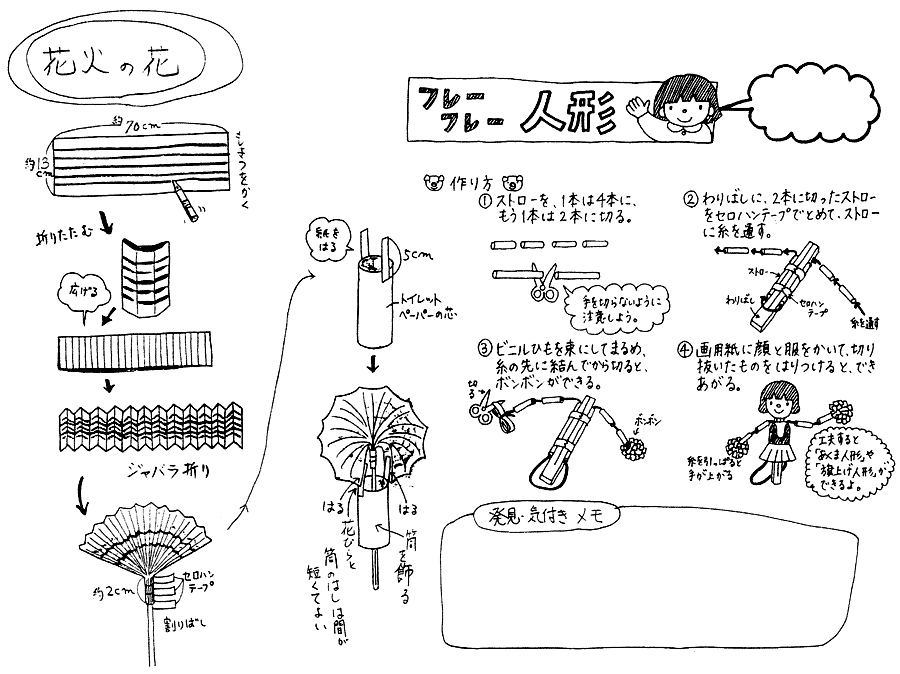 花火の花
約70cm
約13cm
もようをかく
折りたたむ
広げる
ジャバラ折り
約2cm
セロハン
テープ
割りばし
紙を
はる
5cm
トイレット
ペーパーの芯
はる
はる
花びらと
筒のはしは間が
短くてよい
筒を飾る
フレー
フレー人形
作り方
①ストローを、1本は4本に、
もう1本は2本に切る。
手を切らないように
注意しよう。
②わりばしに、2本に切ったストロー
をセロハンテープでとめて、ストロー
に糸を通す。
ストロー
わりばし
セロハン
テープ
糸を通す
③ビニルひもを束にしてまるめ、
糸の先に結んでから切ると、
ボンボンができる。
切る
ボンボン
④画用紙に顔と服をかいて、切り
抜いたものをはりつけると、でき
あがる。
糸を引っぱると
手が上がる
工夫すると
「あくま人形」や
「旗上げ人形」が
できるよ。
発見・気付きメモ